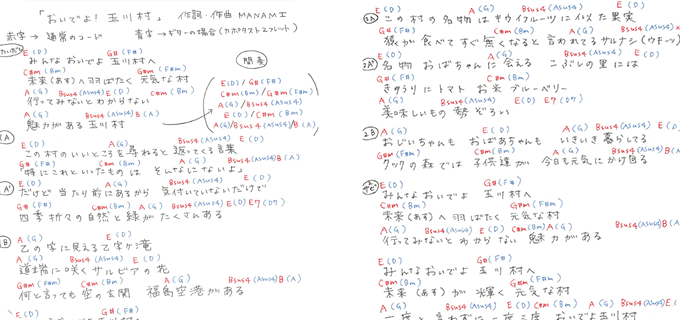 「おいでよ！玉川村」 作詞・作曲 MANAMI
赤字→通常のコード 青字→ギターの場合(カポタスト2フレット)
E(D) G#(F#)
みんな おいでよ 玉川村へ
C#m(Bm) G#m(F#m)
未来(あす)へ羽ばたく 元気な村
A(G) Bsus4(Asus4) E(D) C#m(Bm)
行ってみないとわからない
A(G) Bsus4(Asus4) B(A)
魅力がある 玉川村
間奏
E(D)/G#(F#)
C#m(Bm)/G#m(F#m)
A(G)/Bsus4(Asus4)
E(D)/C#m(Bm)
A(G)/Bsus4(Asus4)B(A)
A
E(D) A(G) Bsus4(Asus4) E(D)
この村の いいところを 尋ねると 返ってくる言葉
G#(F#) C#m(Bm) A(G) Bsus4(Asus4)B(A)
「特にこれといったものは そんなにないよ」
A' E(D) A(G) Bsus4(Asus4) E(D)
だけど 当たり前にあるから 気付いていないだけで
G#(F#) C#m(Bm) A(G) Bsus4(Asus4) E(D) E7(D7)
四季折々の自然と 緑が たくさんある
B A(G) E(D)
乙の字に見える 乙字ヶ滝
A(G) Bsus4(Asus4) E(D)
道端に咲く サルビアの花
A(G) G#m(F#m) C#m(Bm) A(G) Bsus4(Asus4)B(A)
何と言っても 空の玄関 福島空港がある
E(D) G#(F#)
2A E(D) A(G) Bsus4(Asus4) E(D)
この村の 名物は キウイフルーツに 似た果実
G#(F#) C#m(Bm) A(G) Bsus4(Asus4)
猿が 食べて すぐ無くなると 言われてる サルナシ
2A' E(D) A(G) Bsus4(Asus4) E(D)
名物 おばちゃんに 会える こぶしの里には
G#(F#) C#m(Bm)
きゅうりにトマト お米 ブルーベリー
A(G) Bsus4(Asus4) E(D) E7(D7)
美味しいもの 勢ぞろい
2B A(G) E(D) A(G) Bsus4(Asus4) E(D)
おじいちゃんも おばあちゃんも いきいき 暮らしてる
G#m(F#m) C#m(Bm) A(G) Bsus4(Asus4)B(A)
クックの森では 子供達が 今日も元気に かけ回る
サビ E(D) G#(F#)
みんな おいでよ 玉川村へ
C#m(Bm) G#m(F#m)
未来(あす)へ 羽ばたく 元気な村
A(G) Bsus4(Asus4) E(D) C#m(Bm) A(G) Bsus4(Asus4)B(A)
行ってみないと わからない 魅力がある
E(D) G#(F#)
みんな おいでよ 玉川村へ
C#m(Bm) G#m(F#m)
未来(あす)が 輝く 元気な村
A(G) Bsus4(Asus4) E(D) C#m(Bm) A(G) Bsus4(Asus4) E(D)
一度と 言わずに 二度 三度 おいでよ玉川村